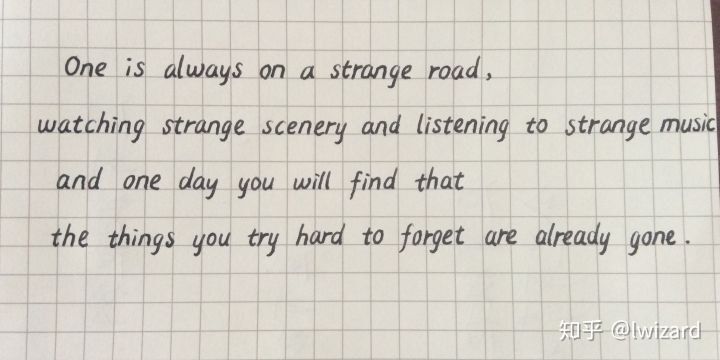 One is always on a strange road,
watching strange scenery and listening to strange music
and one day you will find that
the things you try hard to forget are already gone.
知乎 @lwizard